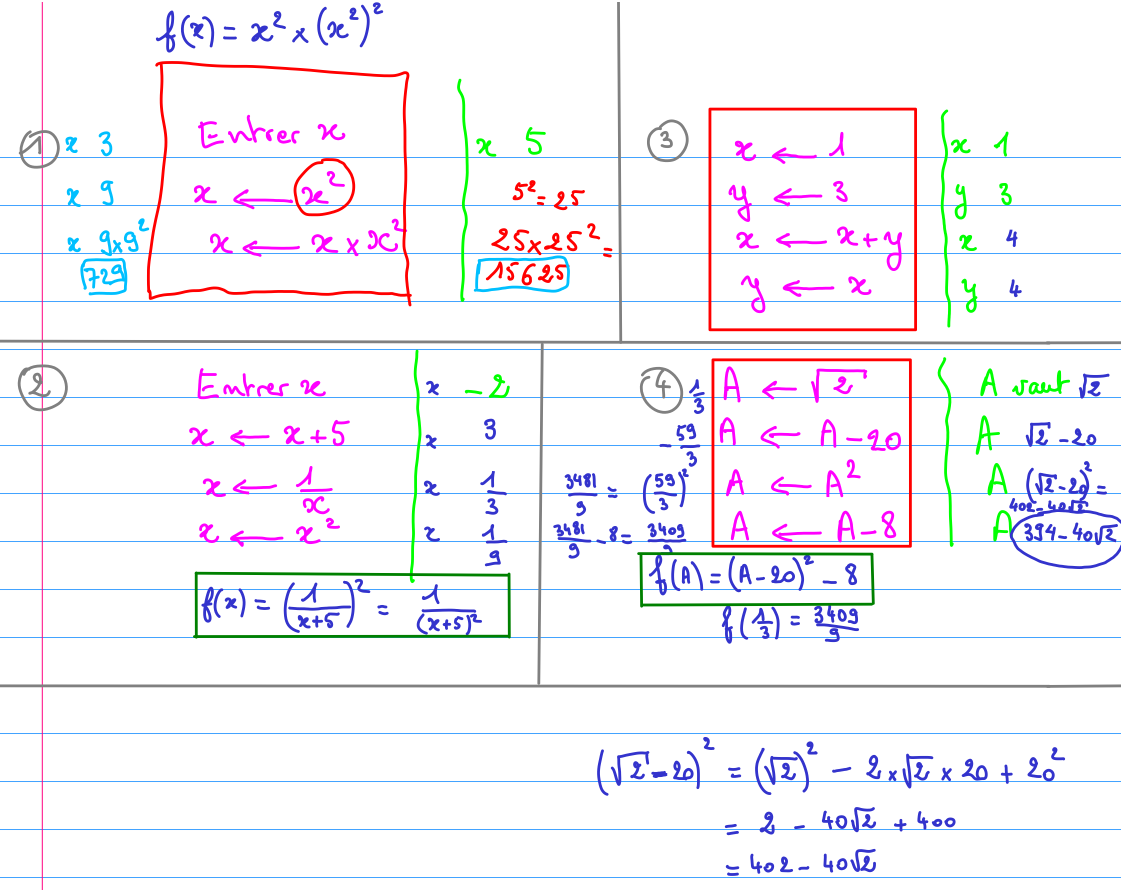 f(x) = x² × (x²)²
① x 3
x 9
x 9×9²
729
Entrer x
x ← x²
x ← x × x²
x 5
5² = 25
25×25² =
15625
③
x ← 1
y ← 3
x ← x+y
y ← x
x 1
y 3
x 4
y 4
②
Entrer x
x ← x+5
x ← 1/x
x ← x²
x -2
x 3
x 1/3
x 1/9
f(x) = (1/(x+5))² = 1/(x+5)²
④
1/3
-59/3
3481/9 = (59/3)²
3481/9 - 8 = 3409/9
A ← √2
A ← A-20
A ← A²
A ← A-8
A vaut √2
A √2 - 20
A (√2-20)² =
402-40√2
A 394-40√2
f(A) = (A-20)² - 8
f(1/3) = 3409/9
(√2-20)² = (√2)² - 2×√2×20 + 20²
= 2 - 40√2 + 400
= 402 - 40√2